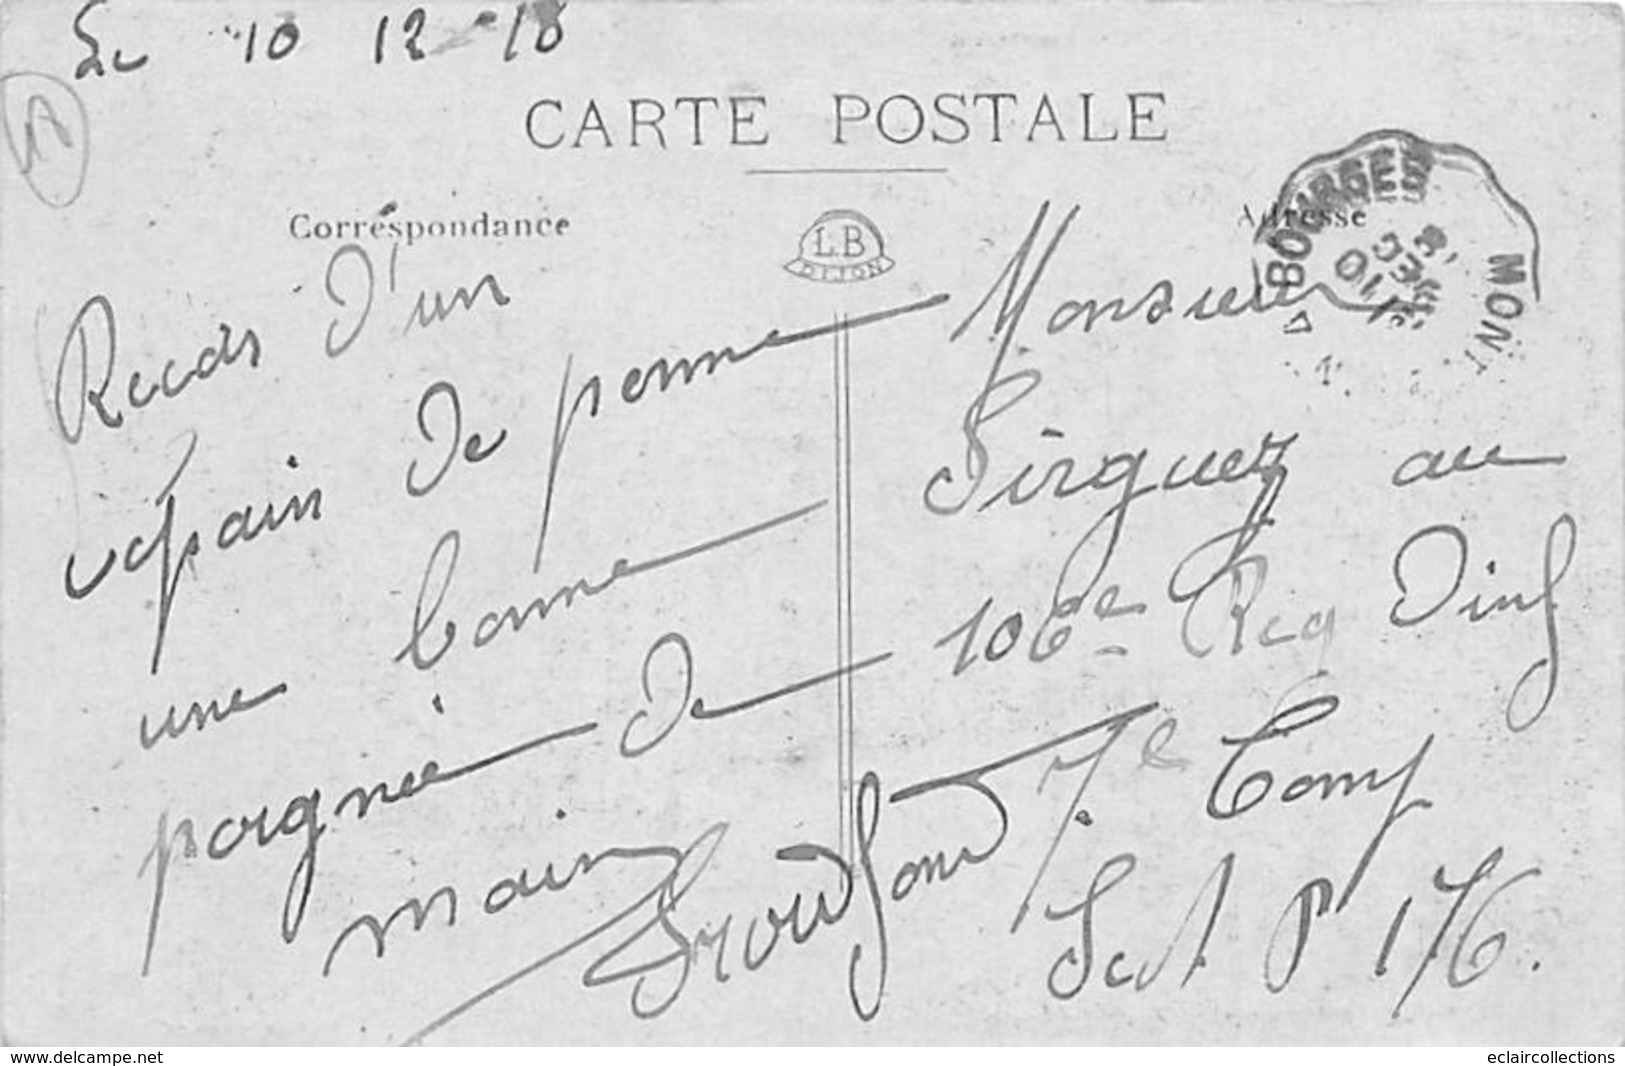 Le 10 12 18
CARTE POSTALE
Correspondance
Adresse
LB
DIJON
BOURGES
MONT
10
DEC
Recois d'un
copain de penne
une bonne
poignée de
main
Monsieur
Sirguez au
106e Reg Dinf
7e Comp
Sect P 176.
www.delcampe.net
eclaircollections